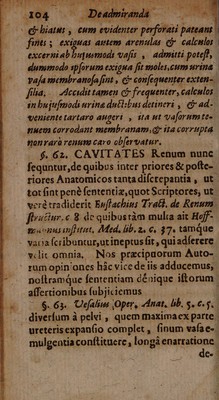 104 De admiranda
& hiatus, cum evidenter perforati pateant
sints; exiguas autem arenulas & calculos
excerni ab hujusmodi vasis, admitti potest,
dummodo ipsorum exigua sit moles, cum urina
vasa membranosa sint, & consequenter exten-
silia. Accidit tamen & frequenter, calculos
in hujusmodi urina ductibus detineri, & ad-
veniente tartaro augeri, ita ut vasorum te-
nuem corrodant membranam, & ita corrupta
non raro renum caro observatur.
§. 62. CAVITATES Renum nunc
sequntur, de quibus inter priores & poste-
riores Anatomicos tanta discrepantia, ut
tot sint penè sententiæ, quot Scriptores, ut
verè tradiderit Eustachius Tract. de Renum
structur. c 8 de quibus tàm multa ait Hoff-
mannus institut. Med. lib. 2. c. 37. tamque
varia scribuntur, ut ineptus sit, qui adserere
velit omnia. Nos præcipuorum Auto-
rum opiniones hâc vice de iis adducemus,
nostramque sententiam dénique istorum
assertionibus subjiciemus
§. 63. Vesalius Oper. Anat. lib. 5. c. 5.
diversum à pelvi, quem maxima ex parte
ureteris expansio complet, sinum vasa e-
mulgentia constituere, longâ enarratione
de-